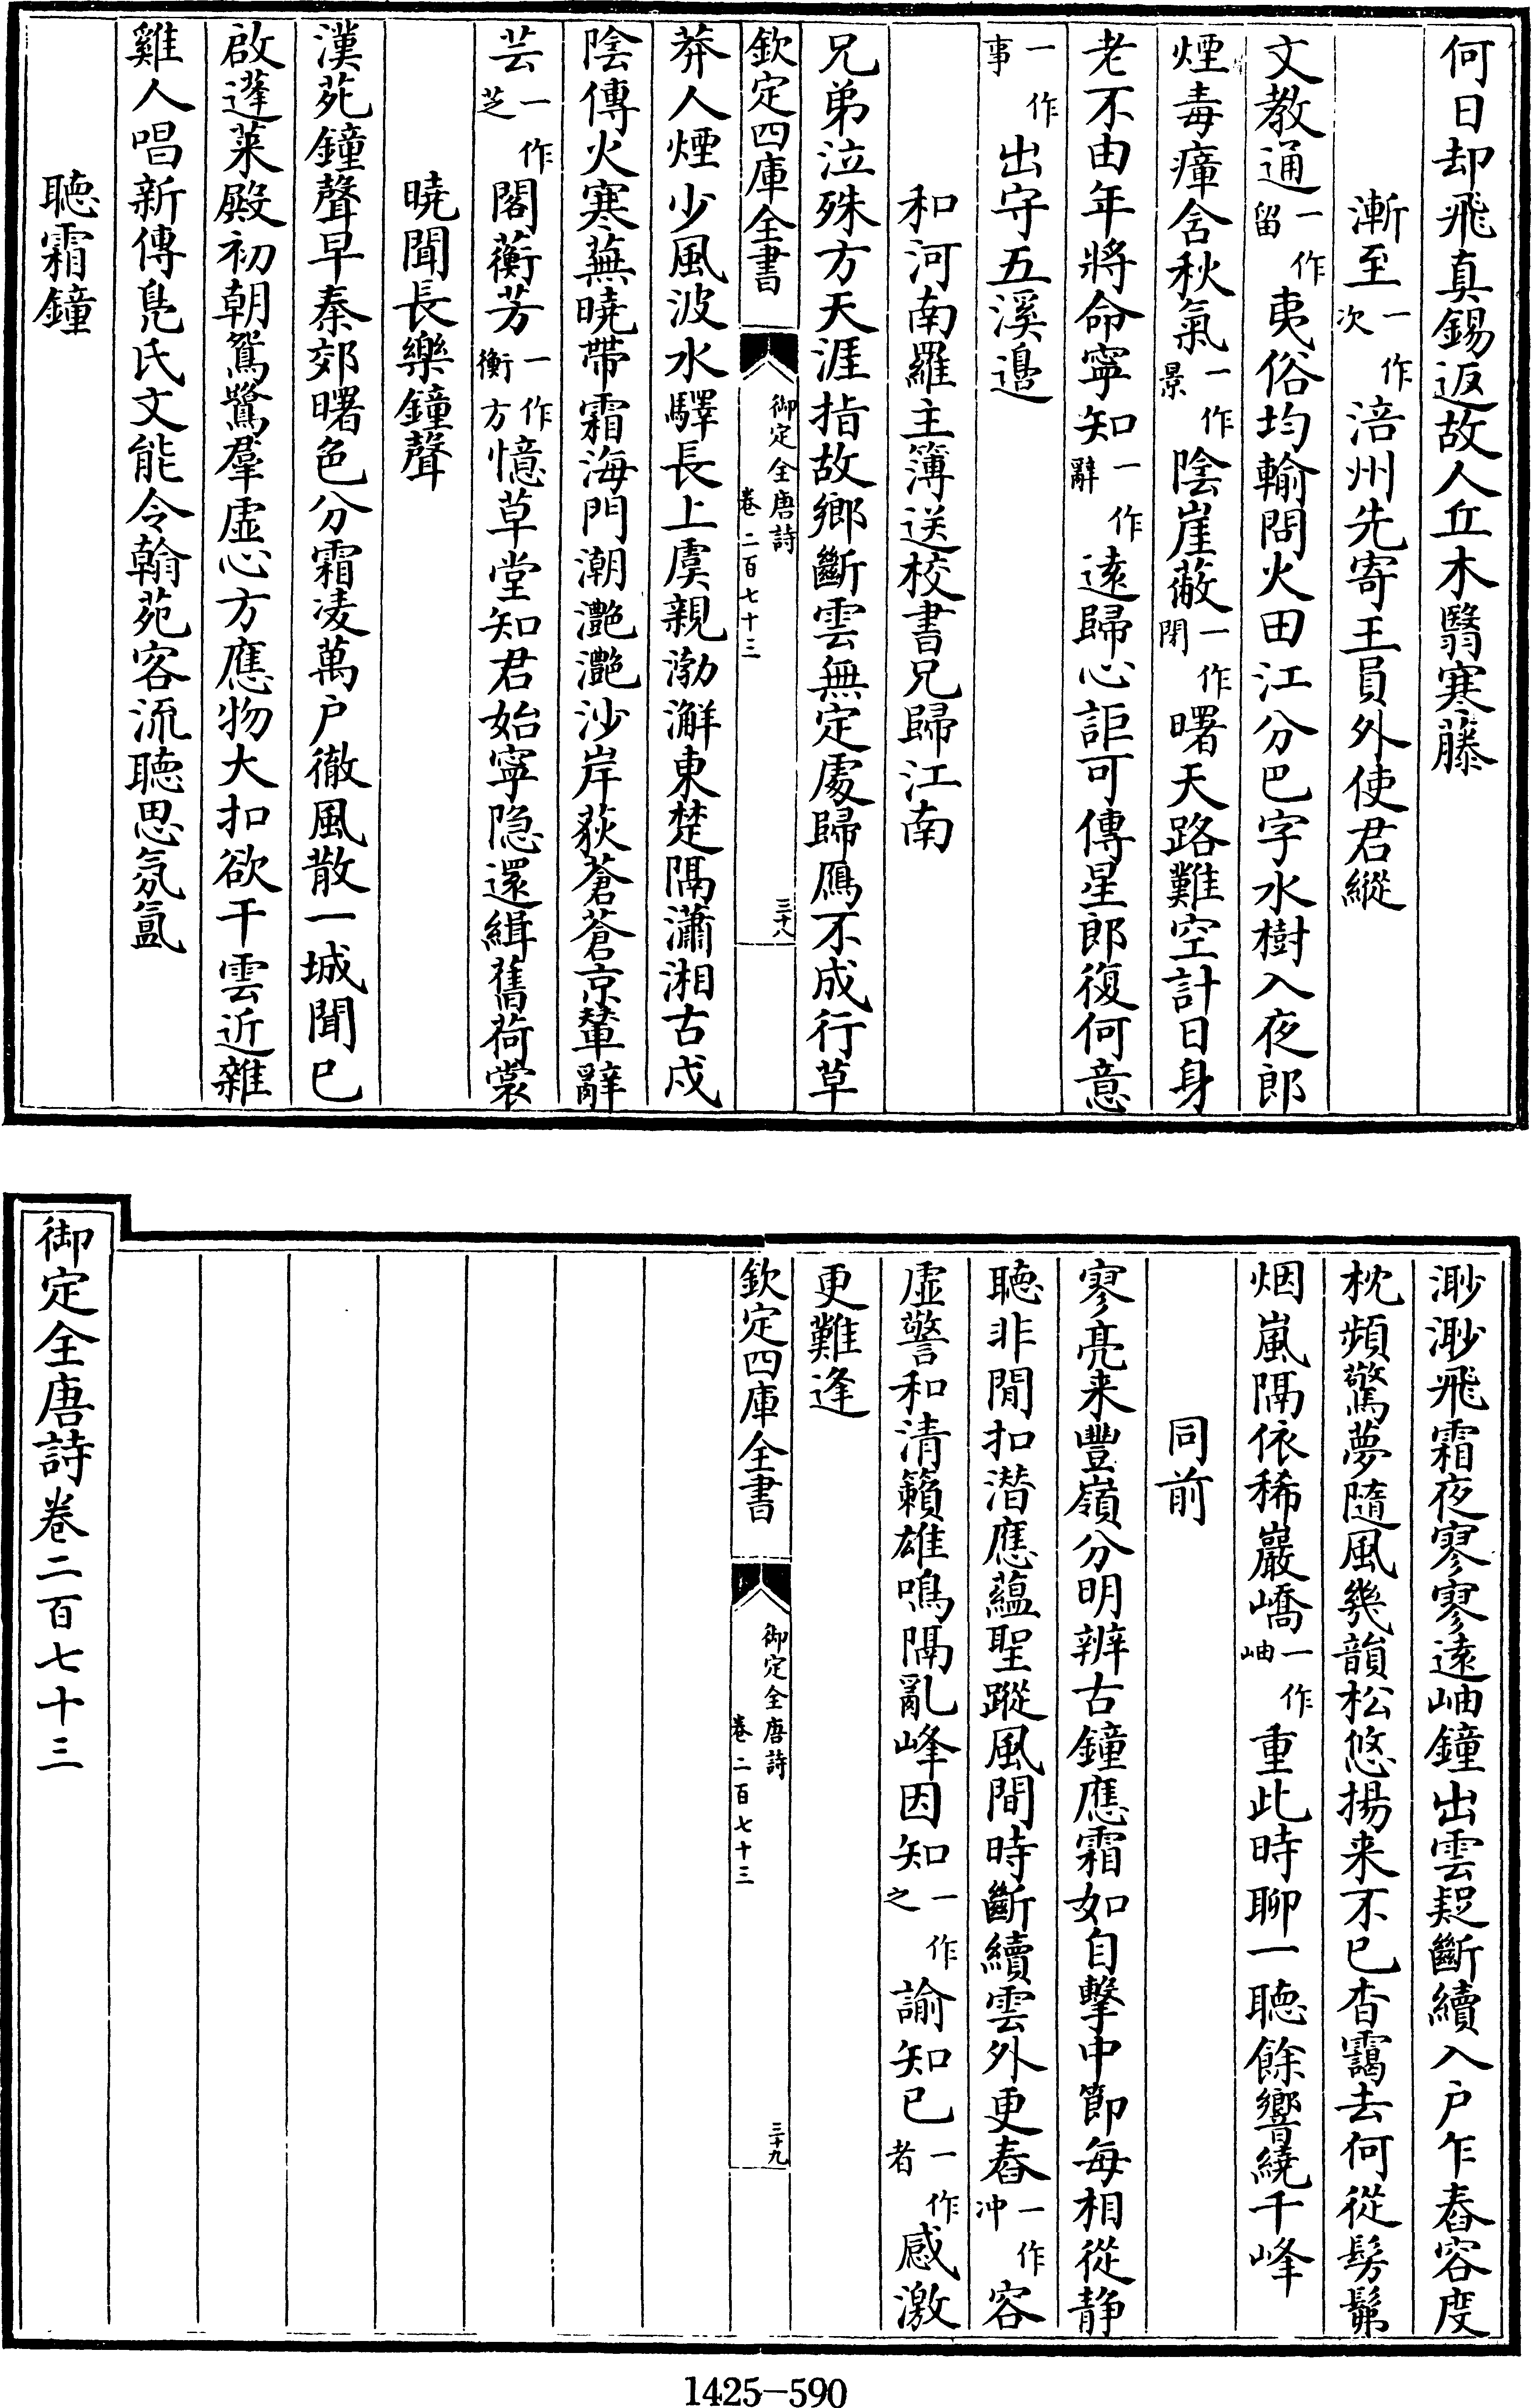 何日却飛真錫返故人丘木翳寒藤
漸至一作次涪州先寄王員外使君縱
文教通一作留夷俗均輸問火田江分巴字水樹入夜郎
煙毒瘴含秋氣一作景陰崖蔽一作閉曙天路難空計日身
老不由年將命寧知一作辭遠歸心詎可傳星郎復何意
一作事出守五溪邉
和河南羅主簿送校書兄歸江南
兄弟泣殊方天涯指故鄉斷雲無定處歸鴈不成行草
欽定四庫全書 御定全唐詩卷二百七十三 三十八
莽人煙少風波水驛長上虞親渤澥東楚隔瀟湘古戍
陰傳火寒蕪曉帶霜海門潮灔灔沙岸荻蒼蒼京輦辭
芸一作芝閣蘅芳一作衡方憶草堂知君始寧隐還緝舊荷裳
曉聞長樂鐘聲
漢苑鐘聲早秦郊曙色分霜凌萬户徹風散一城聞已
啟蓬萊殿初朝鴛鷺羣虛心方應物大扣欲干雲近雜
雞人唱新傳鳬氏文能令翰苑客流聽思氛氲
聽霜鐘
渺渺飛霜夜寥寥遠岫鐘出雲疑斷續入户乍舂容度
枕頻驚夢隨風幾韻松悠揚来不已杳靄去何從髣髴
烟嵐隔依稀巖嶠一作岫重此時聊一聽餘響繞千峰
同前
寥亮来豐嶺分明辨古鐘應霜如自擊中節每相從静
聽非閒扣潜應蘊聖蹤風間時斷續雲外更舂一作冲容
虛警和清籟雄鳴隔亂峰因知一作之諭知已一作者感激
更難逢
欽定四庫全書 御定全唐詩卷二百七十三 三十九
御定全唐詩卷二百七十三
1425-590